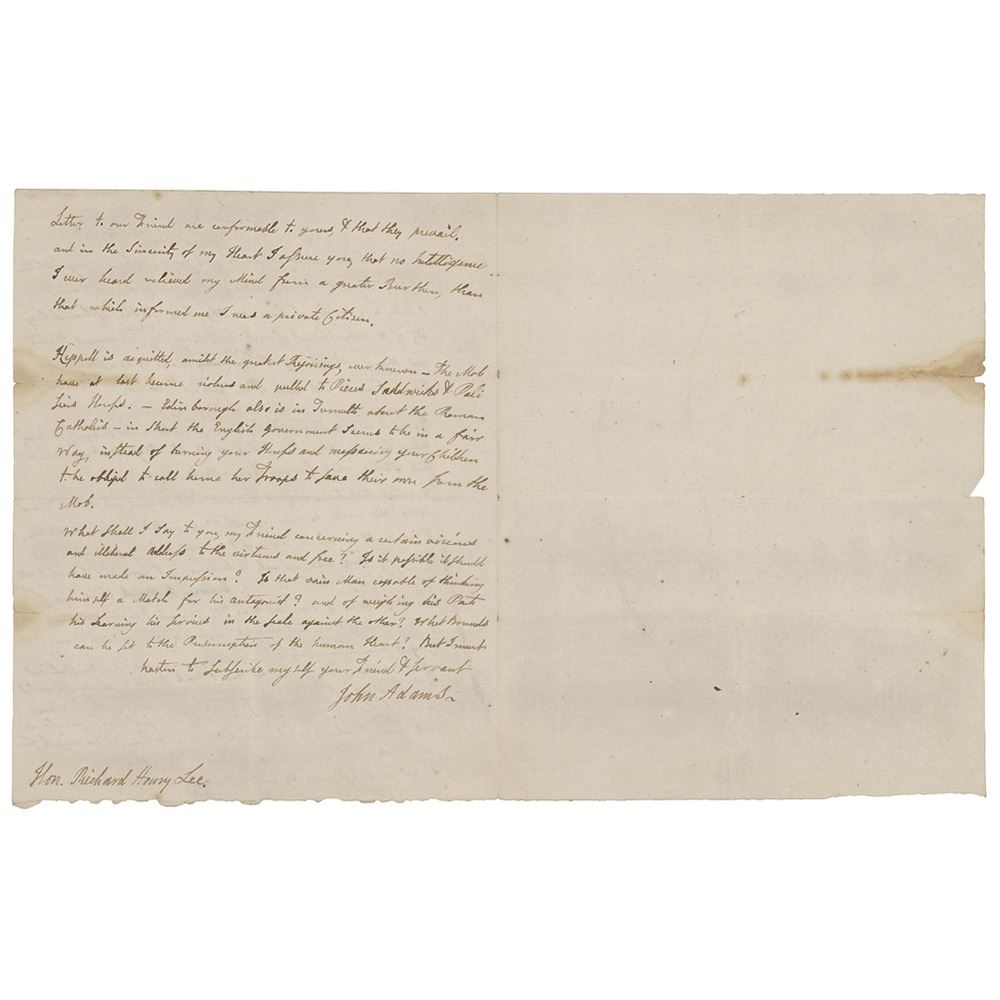 Letter to our Friend are conformable to yours, & that they prevail,
and in the Sincerity of my Heart I assure you, that no Intelligence
I ever heard relieved my Mind from a greater Burthen, than
that which informed me I was a private Citizen.
Keppell is acquitted, amidst the greatest Rejoicings, ever known — The Mob
have at last become riotous and pulled to Pieces Sandwichs & Pali
sers Houses. — Edinborough also is in Tumults about the Roman
Catholics — in short the English government seems to be in a fair
Way, instead of burning your Houses and massacring your Children
to be obliged to call home her Troops to save their own from the
Mob.
What shall I say to you, my Friend concerning a certain vicious
and illiberal Address to the virtuous and free? Is it possible it should
have made an Impression? Is that vain Man capable of thinking
himself a Match for his Antagonist? and of weighing his Parts
his Learning his services in the scale against the other? What Bounds
can be set to the Presumption of the human Heart? But I must
hasten to subscribe myself your Friend & servant
John Adams
Hon. Richard Henry Lee.